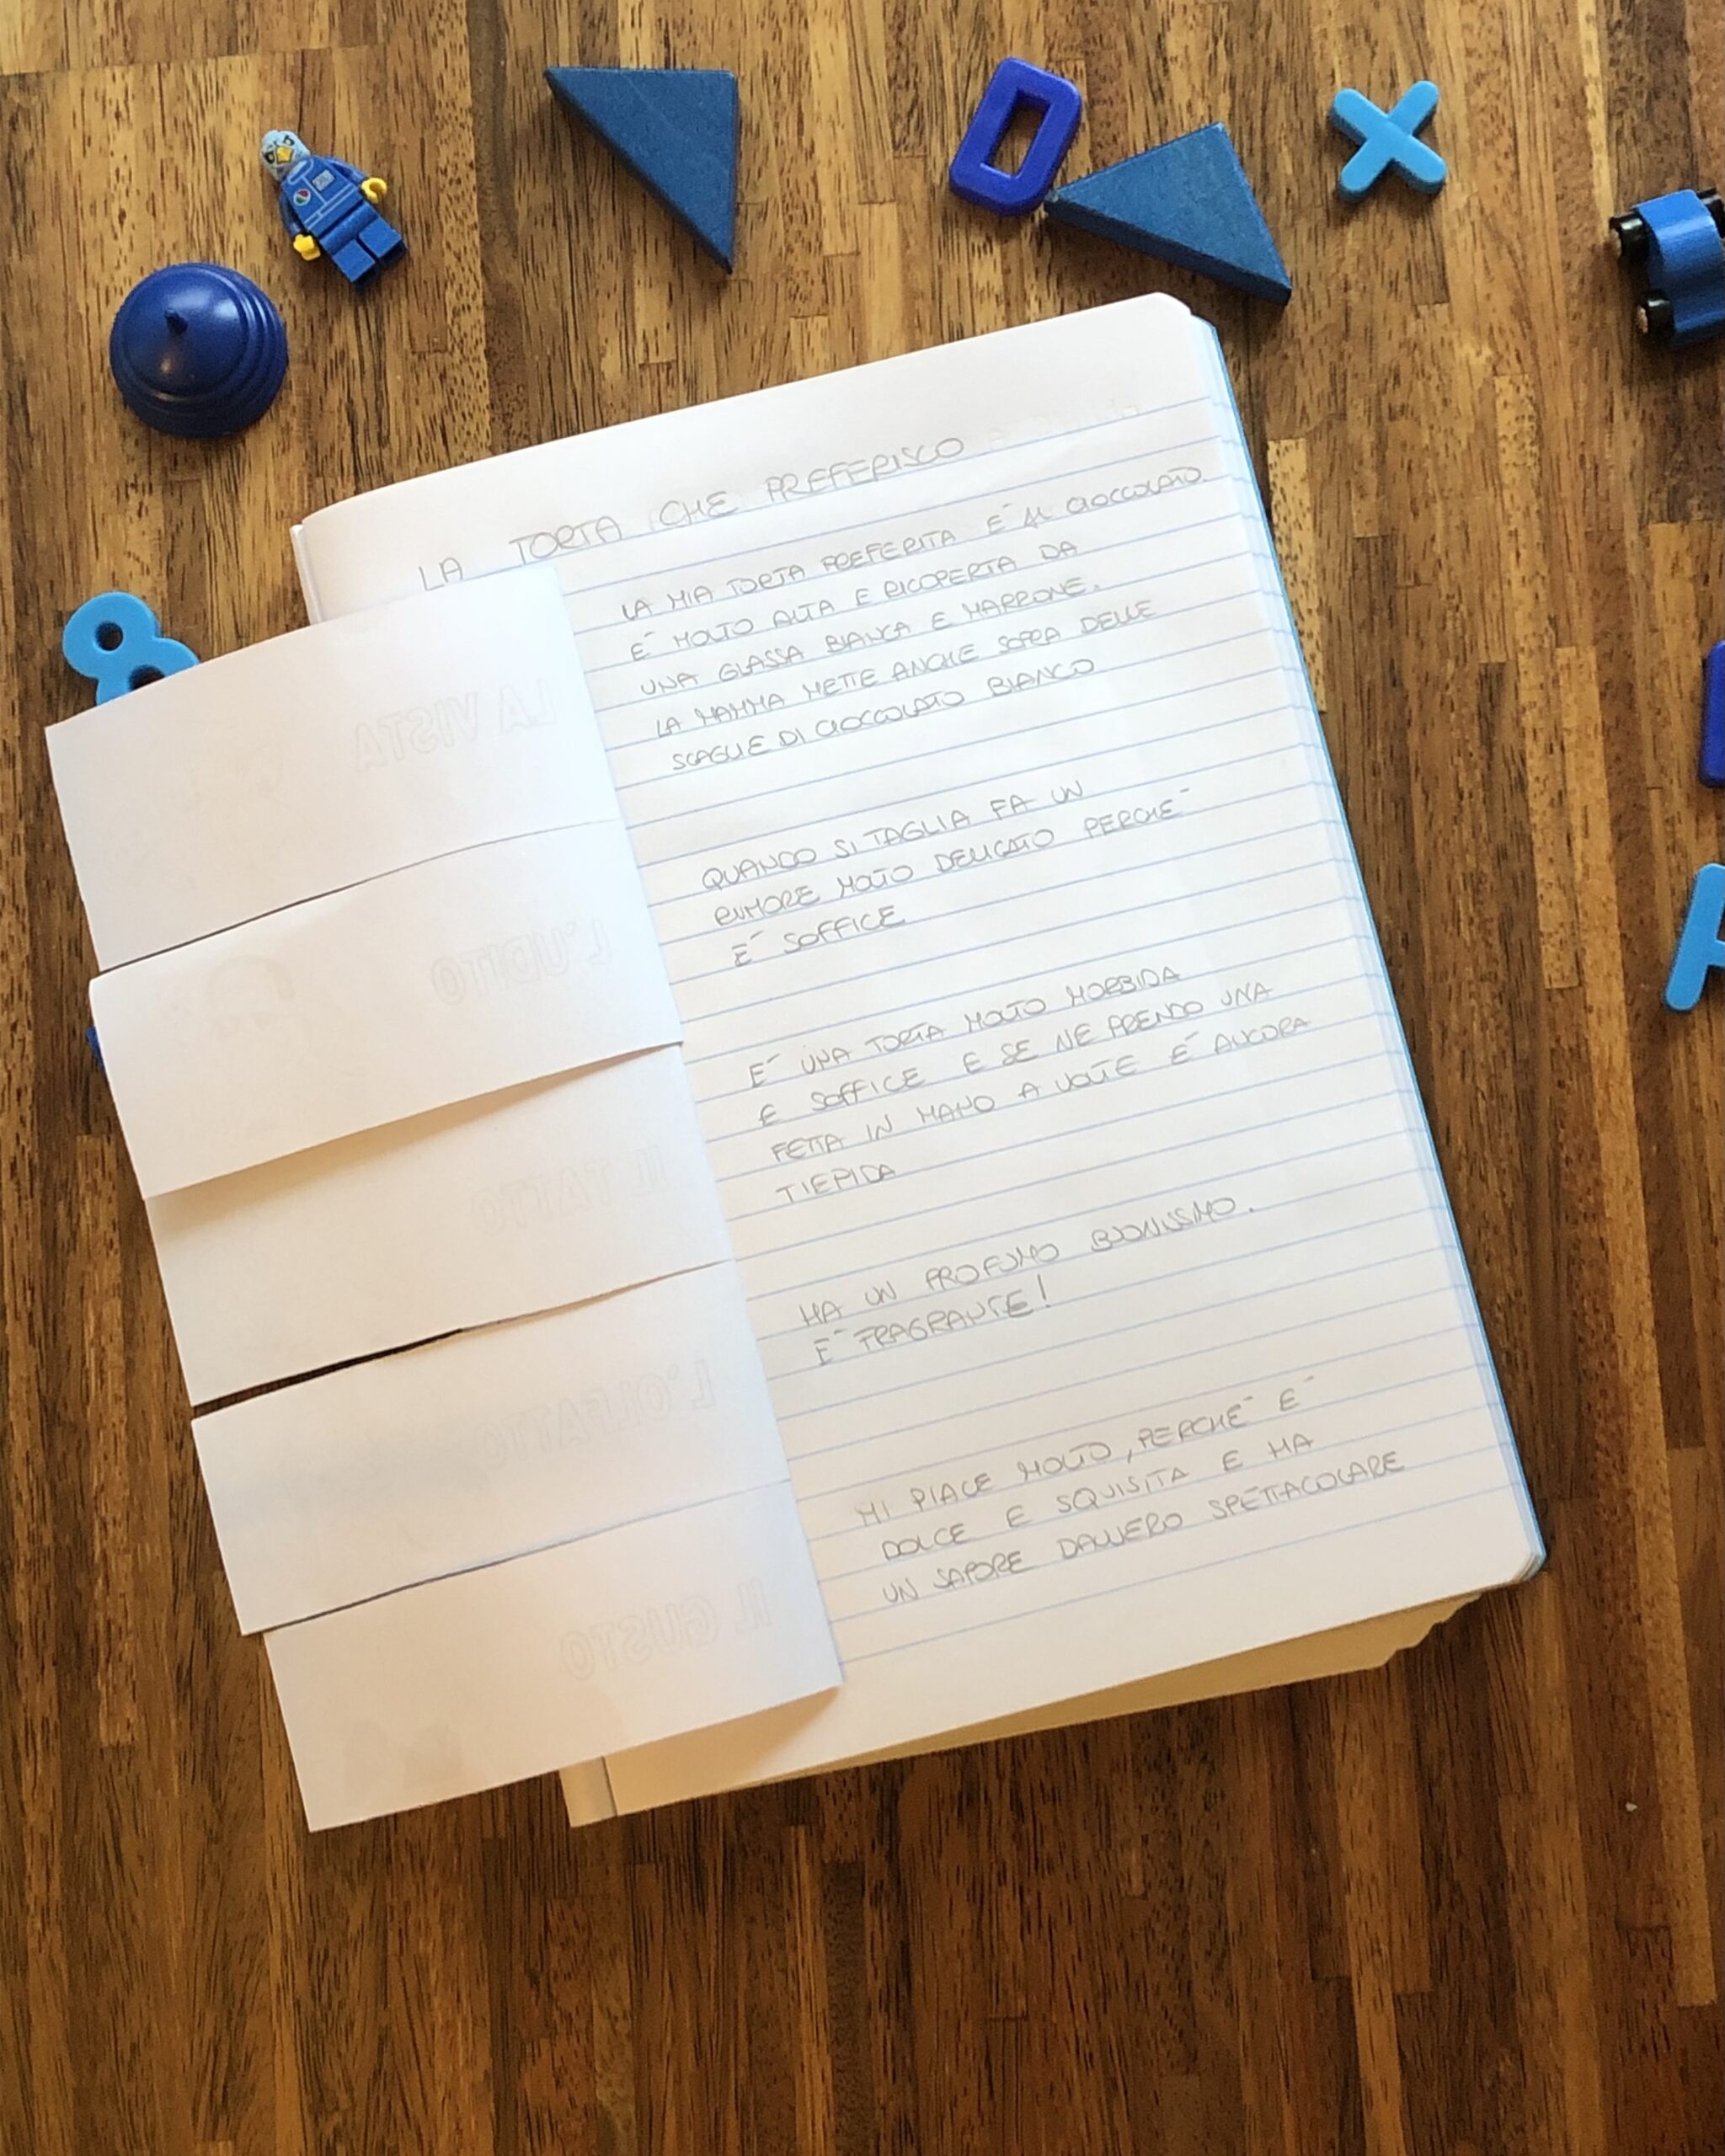 LA TORTA CHE PREFERISCO
LA MIA TORTA PREFERITA E´ AL CIOCCOLATO.
E´ MOLTO ALTA E RICOPERTA DA
UNA GLASSA BIANCA E MARRONE.
LA MAMMA METTE ANCHE SOPRA DELLE
SCAGLIE DI CIOCCOLATO BIANCO
LA VISTA
QUANDO SI TAGLIA FA UN
RUMORE MOLTO DELICATO PERCHE´
E´ SOFFICE
L'UDITO
E´ UNA TORTA MOLTO MORBIDA
E SOFFICE E SE NE PRENDO UNA
FETTA IN MANO A VOLTE E´ ANCORA
TIEPIDA
IL TATTO
HA UN PROFUMO BUONISSIMO.
E´ FRAGRANTE!
L'OLFATTO
MI PIACE MOLTO, PERCHE´ E´
DOLCE E SQUISITA E HA
UN SAPORE DAVVERO SPETTACOLARE
IL GUSTO
8
X